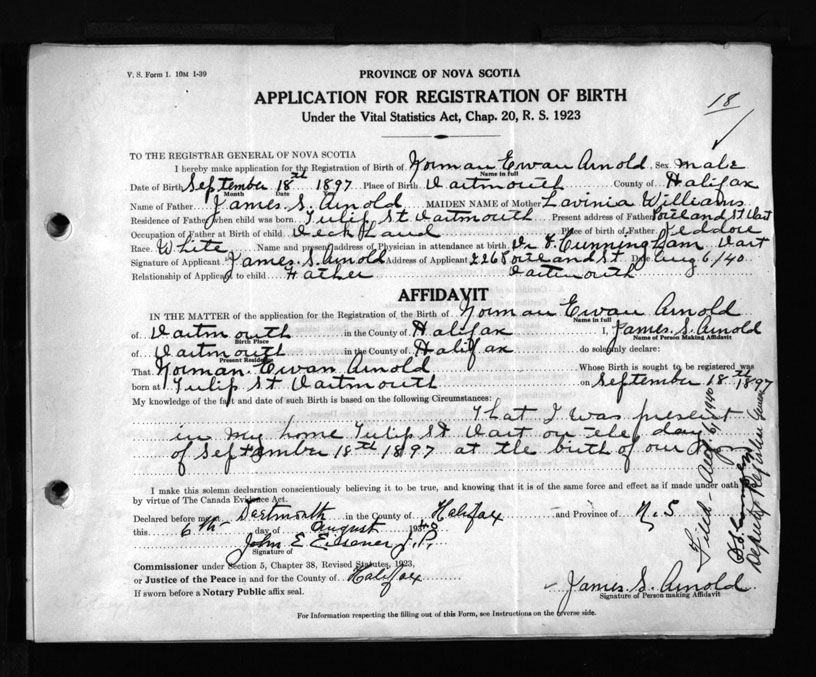 V. S. Form 1. 10M 1-39
PROVINCE OF NOVA SCOTIA
APPLICATION FOR REGISTRATION OF BIRTH
Under the Vital Statistics Act, Chap. 20, R. S. 1923
18
TO THE REGISTRAR GENERAL OF NOVA SCOTIA
I hereby make application for the Registration of Birth of Norman Ewan Arnold Sex male
Name in full
Date of Birth September 18th 1897 Place of Birth Dartmouth County of Halifax
Month Date
Name of Father James S. Arnold MAIDEN NAME of Mother Lavinia Williams
Residence of Father when child was born Tulip St Dartmouth Present address of Father Portland St Dart
Occupation of Father at Birth of child Deck Hand Place of birth of Father Jeddore
Race White Name and present address of Physician in attendance at birth Dr F. Cunningham Dart
Signature of Applicant James. S. Arnold Address of Applicant 226 Portland St Date Aug 6/40
Relationship of Applicant to child Father Dartmouth
AFFIDAVIT
IN THE MATTER of the application for the Registration, of the Birth of Norman Ewan Arnold
Name in full
of Dartmouth in the County of Halifax I, James S. Arnold
Birth Place Name of Person Making Affidavit
of Dartmouth in the County of Halifax do solemnly declare:
Present Residence
That Norman Ewan Arnold Whose Birth is sought to be registered was
born at Tulip St Dartmouth on September 18th 1897
My knowledge of the fact and date of such Birth is based on the following Circumstances:
That I was present
in my home Tulip St Dart on the day
of September 18th 1897 at the birth of our Boy
I make this solemn declaration conscientiously believing it to be true, and knowing that it is of the same force and effect as if made under oath
by virtue of The Canada Evidence Act.
Declared before me at Dartmouth in the County of Halifax and Province of N. S
this 6th day of August 1940
John E Eisener J. P.
Signature of
Commissioner under Section 5, Chapter 38, Revised Statutes, 1923,
or Justice of the Peace in and for the County of Halifax
If sworn before a Notary Public affix seal.
James. S. Arnold
Signature of Person making Affidavit
For Information respecting the filling out of this Form, see Instructions on the reverse side.
Filed - Aug 6/1940
Deputy Registrar